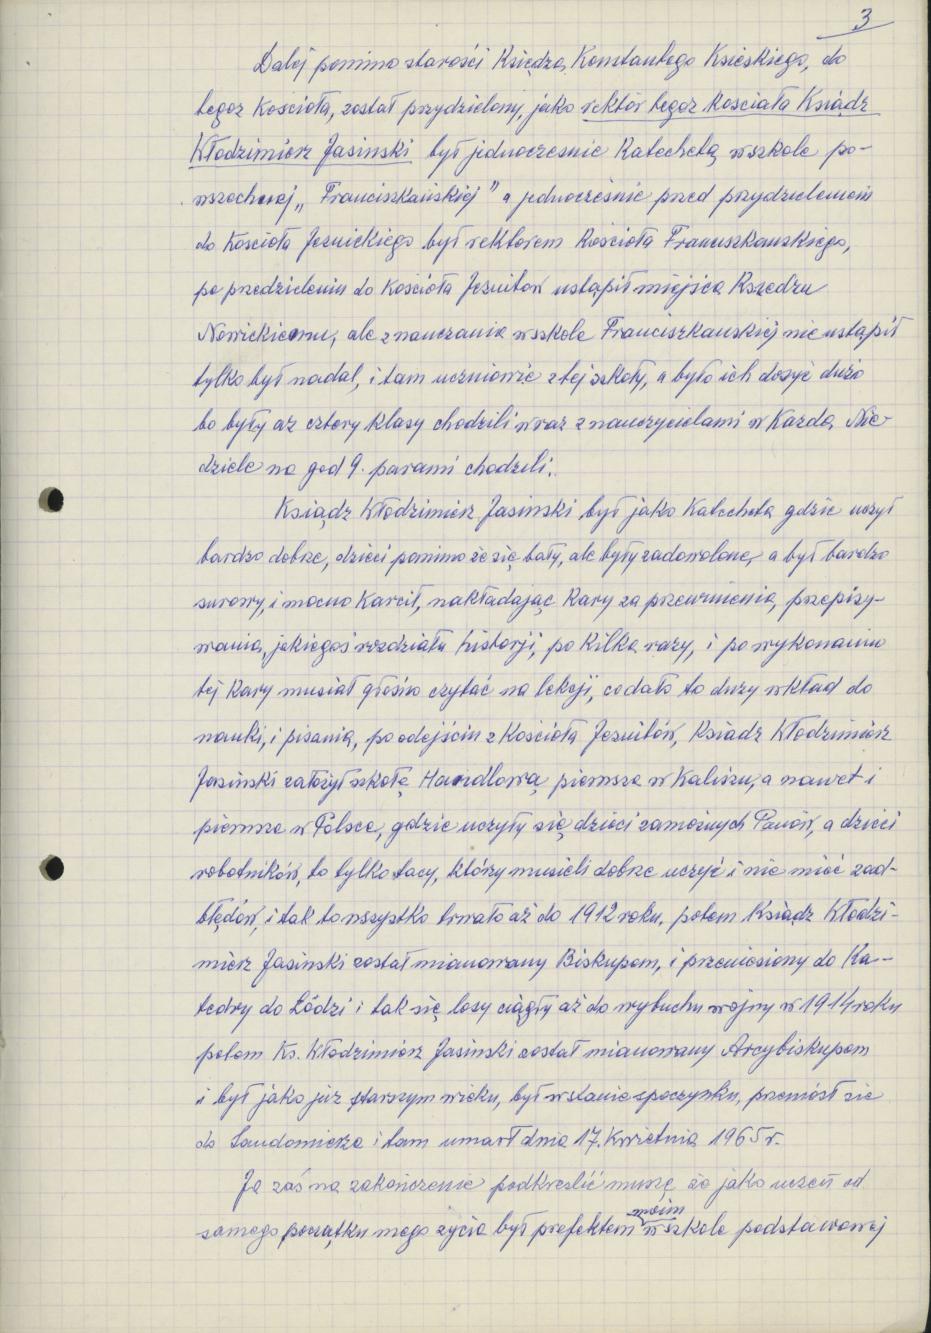 3
Dalej pomimo starości Księdza, Konstantego Ksieskiego, do
tegoż Kościoła, został przydzielony, jako rektór tegoż Kosciała Ksiądz
Włodzimierz Jasinski był jednoczesnie Katechetą, w szkole po-
wszechnej „Franciszkańskiej" a jednocześnie przed przydzieleniem
do Kościoła Jezuickiego był rektorem Kościoła Franciszkanskiego,
po przedzieleniu do Kościoła Jezuitów ustąpił miejsca Kszędzu
Nowickiemu, ale z nauczania w szkole Franciszkanskiej nie ustąpił
tylko był nadal, i tam uczniowie z tej szkoły, a było ich dosyć dużo
bo były aż cztery klasy chodzili wraz z nauczycielami w Każdą Nie-
dziele na god 9. parami chodzili.
Ksiądz Włodzimierz Jasinski był jako Katecheta gdzie uczył
bardzo dobrze, dzieci pomimo że się bały, ale były zadowolone, a był bardzo
surowy, i mocno Karcił, nakładając Kary za przewinienia, przepisy-
wania, jakiegoś rozdziału historji, po kilka razy, i po wykonaniu
tej Kary musiał głośno czytać na lekcji, co dało to duży wkład do
nauki, i pisania, po odejściu z Kościoła Jezuitów, Ksiadz Włodzimierz
Jasinski założył szkołę Handlową pierwsza w Kaliszu, a nawet i
pierwsza w Polsce, gdzie uczyły się dzieci zamożnych Panów, a dzieci
robotników, to tylko tacy, którzy musieli dobrze uczyć i nie mieć zad-
błędów, i tak to wszystko trwało aż do 1912 roku, potem Ksiądz Włodzi-
mierz Jasinski został mianowany Biskupem, i przeniesiony do Ka-
tedry do Łódzi i tak się losy ciągły aż do wybuchu wojny w 1914 roku
potem Ks. Włodzimierz Jasinski został mianowany Arcybiskupem
i był jako już starszym wieku, był w stanie spoczynku, przeniósł sie
do Sandomierza i tam umarł dnia 17. Kwietnia 1965 r.
Ja zaś na zakończenie podkreślić muszę że jako uczeń od
samego początku mego życia był prefektem moim w szkole podstawowej